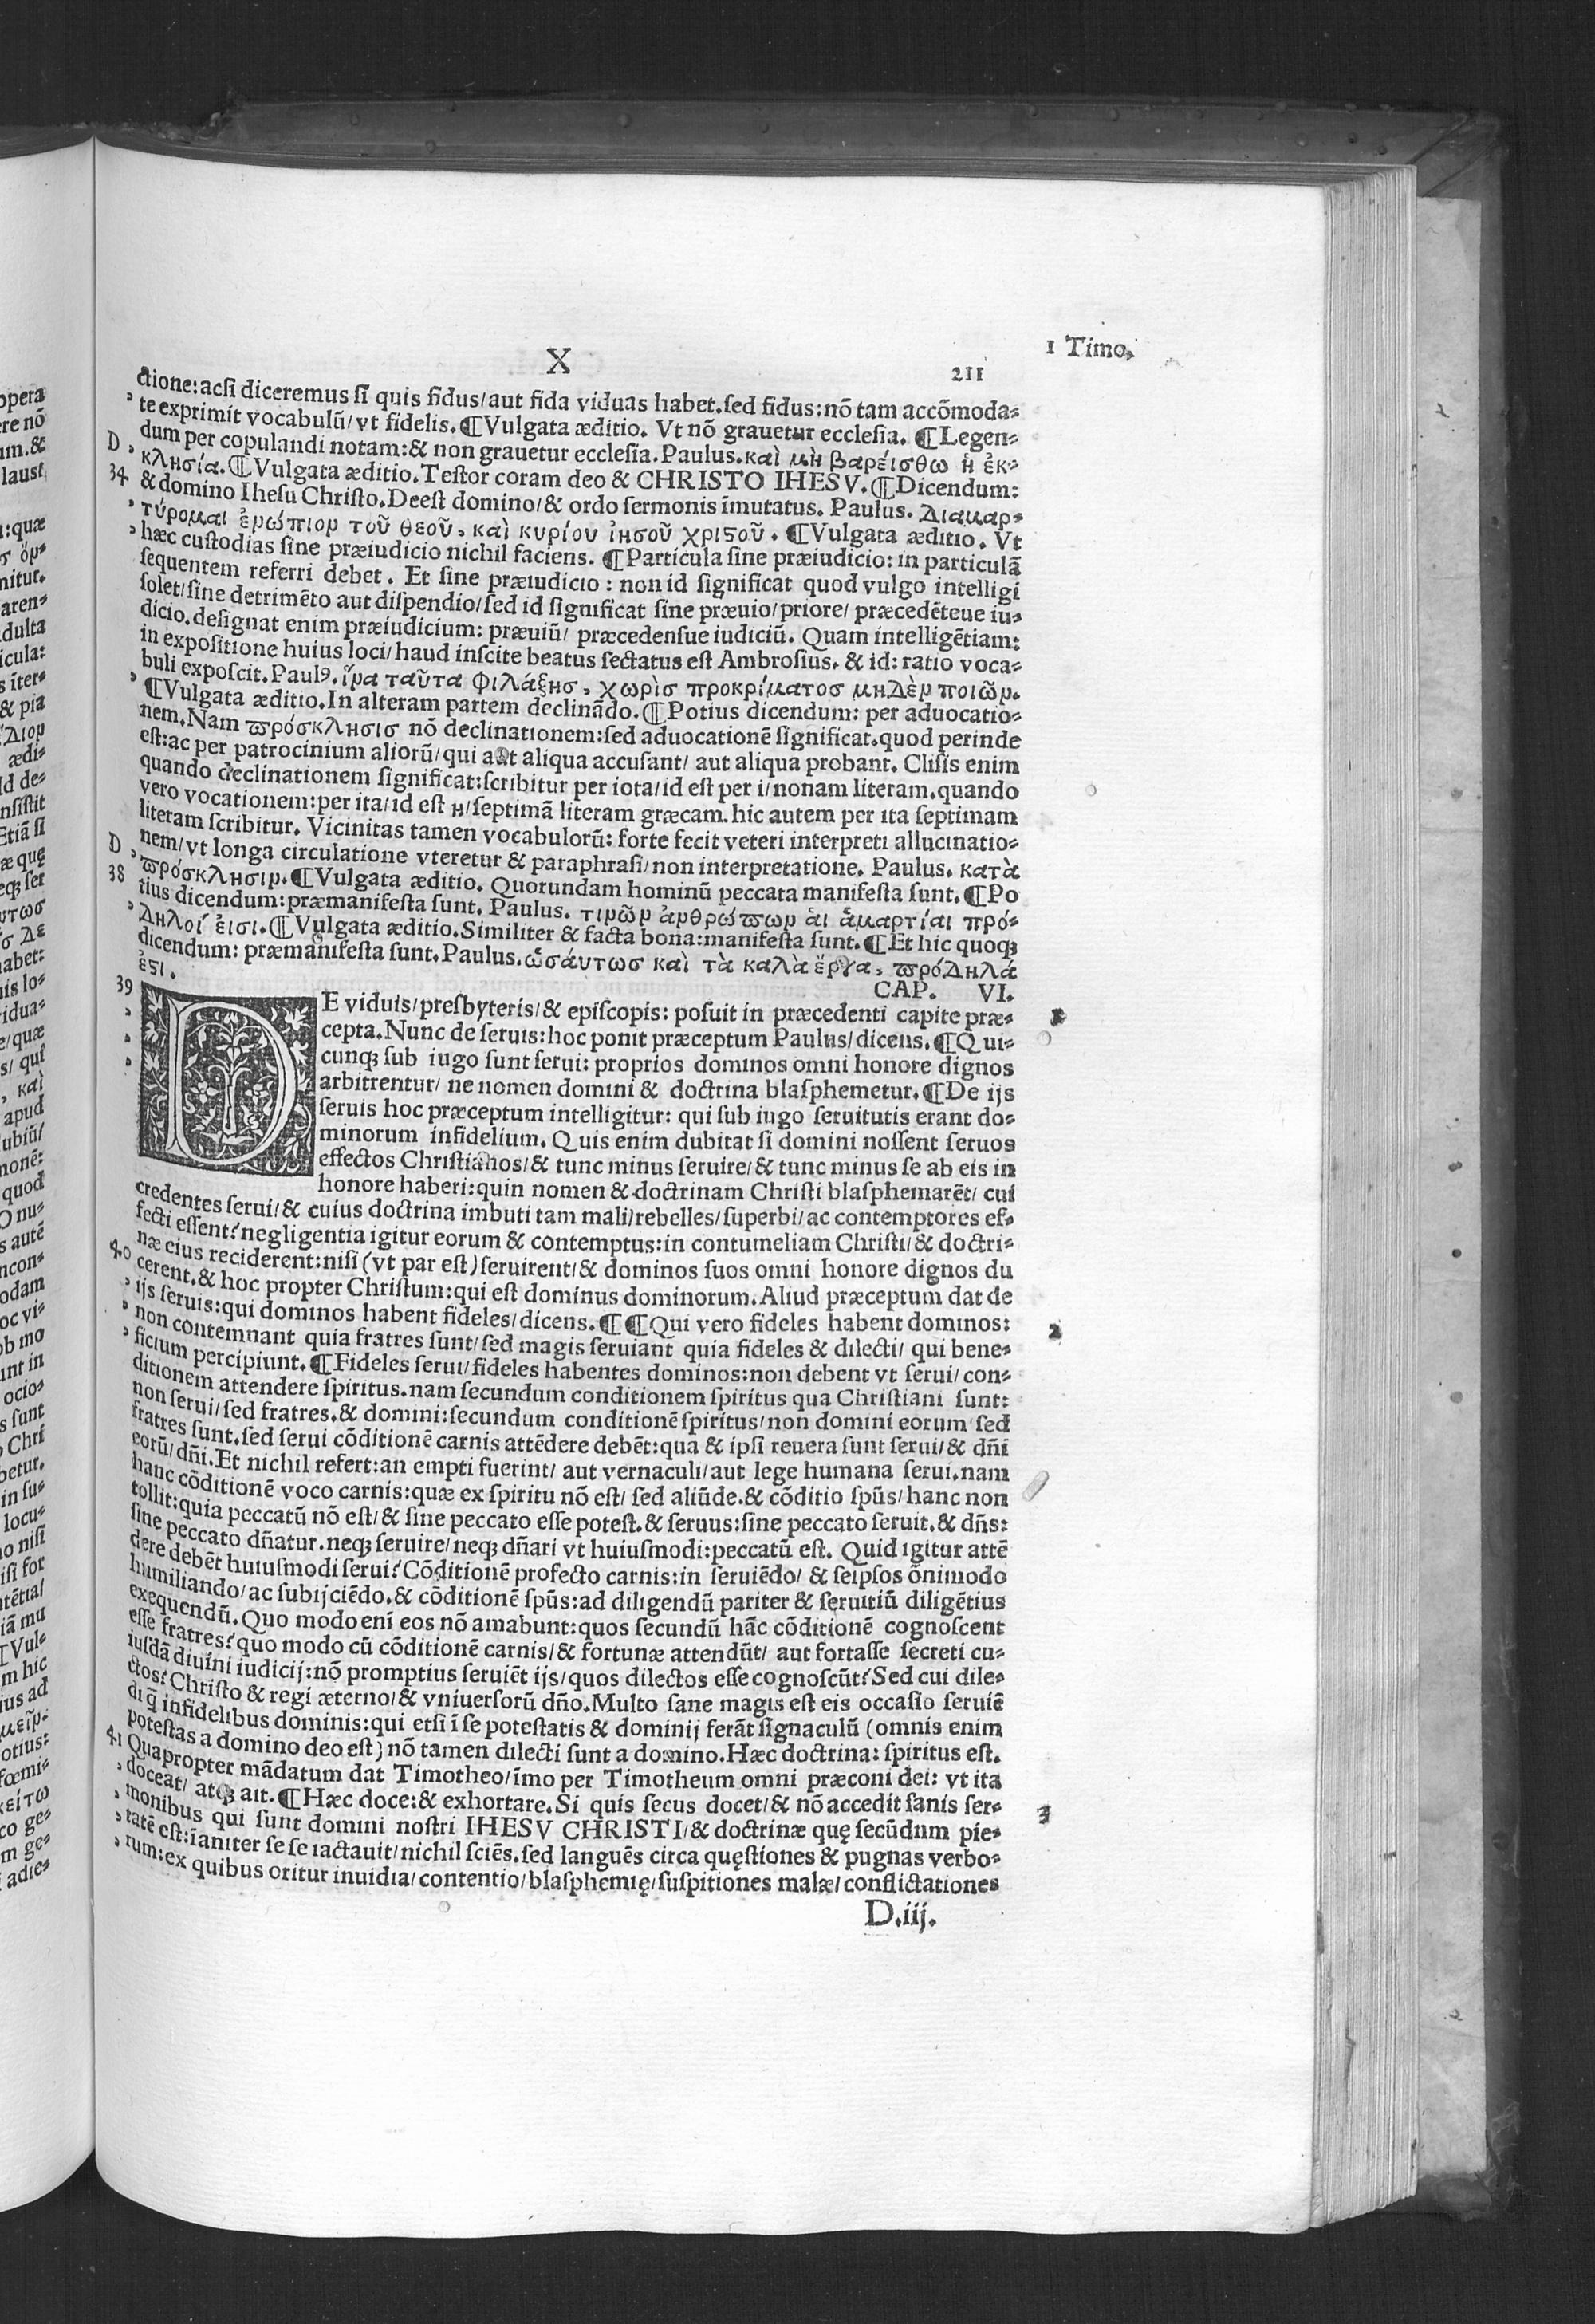 1 Timo.
X
211
ctione:acsi diceremus si quis fidus/aut fida viduas habet.sed fidus:nō tam accōmoda-
te exprimit vocabulū/vt fidelis.¶Vulgata æditio. Vt nō grauetur ecclesia. ¶Legen-
D dum per copulandi notam:& non grauetur ecclesia.Paulus.καὶ μὴ βαρείσθω ἡ ἐκ-
34 κλησία.¶Vulgata æditio.Testor coram deo & CHRISTO IHESV.¶Dicendum:
& domino Ihesu Christo.Deest domino/& ordo sermonis īmutatus. Paulus. Διαμαρ-
τύρομαι ἐνώπιον τοῦ θεοῦ, καὶ κυρίου ἰησοῦ χριστοῦ. ¶Vulgata æditio. Vt
hæc custodias sine præiudicio nichil faciens. ¶Particula sine præiudicio: in particulā
sequentem referri debet. Et sine præiudicio : non id significat quod vulgo intelligi
solet/sine detrimēto aut dispendio/sed id significat sine præuio/priore/ præcedēteue iu-
dicio.designat enim præiudicium: præuiū/ præcedensue iudiciū. Quam intelligētiam:
in expositione huius loci/haud inscite beatus sectatus est Ambrosius. & id: ratio voca-
buli exposcit.Paulꝰ.ἵνα ταῦτα φιλάξησ, χωρὶσ προκρίματοσ μηδὲν ποιῶν.
¶Vulgata æditio.In alteram partem declinādo.¶Potius dicendum: per aduocatio-
nem.Nam πρόσκλησισ nō declinationem:sed aduocationē significat.quod perinde
est:ac per patrocinium aliorū/qui aut aliqua accusant/ aut aliqua probant. Clisis enim
quando declinationem significat:scribitur per iota/id est per i/nonam literam.quando
vero vocationem:per ita/id est η/septimā literam græcam.hic autem per ita septimam
literam scribitur. Vicinitas tamen vocabulorū: forte fecit veteri interpreti allucinatio-
D nem/vt longa circulatione vteretur & paraphrasi/non interpretatione. Paulus. κατὰ
38 πρόσκλησιν.¶Vulgata æditio. Quorundam hominū peccata manifesta sunt.¶Po
tius dicendum:præmanifesta sunt. Paulus. τινῶν ἀνθρώπων ἁι ἁμαρτίαι πρό-
δηλοί ἐισι.¶Vulgata æditio.Similiter & facta bona:manifesta sunt.¶Et hic quoqꝫ
dicendum: præmanifesta sunt.Paulus.ὡσάυτωσ καὶ τὰ καλὰ ἔργα, πρόδηλά
ἐστι. CAP. VI.
39 DE viduis/presbyteris/& episcopis: posuit in præcedenti capite præ- 1
cepta.Nunc de seruis:hoc ponit præceptum Paulus/dicens.¶Qui-
cunqꝫ sub iugo sunt serui: proprios dominos omni honore dignos
arbitrentur/ ne nomen domini & doctrina blasphemetur.¶De ijs
seruis hoc præceptum intelligitur: qui sub iugo seruitutis erant do-
minorum infidelium. Quis enim dubitat si domini nossent seruos
effectos Christianos/& tunc minus seruire/& tunc minus se ab eis in
honore haberi:quin nomen & doctrinam Christi blasphemarēt/ cui
credentes serui/& cuius doctrina imbuti tam mali/rebelles/superbi/ac contemptores ef-
fecti essent?negligentia igitur eorum & contemptus:in contumeliam Christi/& doctri-
næ eius reciderent:nisi (vt par est)seruirent/& dominos suos omni honore dignos du
40 cerent.& hoc propter Christum:qui est dominus dominorum.Aliud præceptum dat de
ijs seruis:qui dominos habent fideles/dicens.¶¶Qui vero fideles habent dominos: 2
non contemnant quia fratres sunt/sed magis seruiant quia fideles & dilecti/ qui bene-
ficium percipiunt.¶Fideles serui/fideles habentes dominos:non debent vt serui/con-
ditionem attendere spiritus.nam secundum conditionem spiritus qua Christiani sunt:
non serui/sed fratres.& domini:secundum conditionē spiritus/non domini eorum sed
fratres sunt.sed serui cōditionē carnis attēdere debēt:qua & ipsi reuera sunt serui/& dn̄i
eorū/dn̄i.Et nichil refert:an empti fuerint/ aut vernaculi/aut lege humana serui.nam
hanc cōditionē voco carnis:quæ ex spiritu nō est/ sed aliūde.& cōditio spūs/hanc non
tollit:quia peccatū nō est/& sine peccato esse potest.& seruus:sine peccato seruit.& dn̄s:
sine peccato dn̄atur.neqꝫ seruire/neqꝫ dn̄ari vt huiusmodi:peccatū est. Quid igitur attē
dere debēt huiusmodi serui?Cōditionē profecto carnis:in seruiēdo/ & seipsos ōnimodo
humiliando/ac subijciēdo.& cōditionē spūs:ad diligendū pariter & seruitiū diligētius
exequendū.Quo modo eni eos nō amabunt:quos secundū hāc cōditionē cognoscent
esse fratres?quo modo cū cōditionē carnis/& fortunæ attendūt/ aut fortasse secreti cu-
iusdā diuini iudicij:nō promptius seruiēt ijs/quos dilectos esse cognoscūt?Sed cui dile-
ctos?Christo & regi æterno/& vniuersorū dn̄o.Multo sane magis est eis occasio seruiē
di q̄ infidelibus dominis:qui etsi ī se potestatis & dominij ferāt signaculū (omnis enim
potestas a domino deo est) nō tamen dilecti sunt a domino.Hæc doctrina: spiritus est.
41 Quapropter mādatum dat Timotheo/īmo per Timotheum omni præconi dei: vt ita
doceat/ atqꝫ ait.¶Hæc doce:& exhortare.Si quis secus docet/& nō accedit sanis ser- 3
monibus qui sunt domini nostri IHESV CHRISTI/& doctrinæ quę secūdum pie-
tatē est:īaniter se se iactauit/nichil sciēs.sed languēs circa quęstiones & pugnas verbo-
rum:ex quibus oritur inuidia/contentio/blasphemię/suspitiones malæ/conflictationes
D.iij.